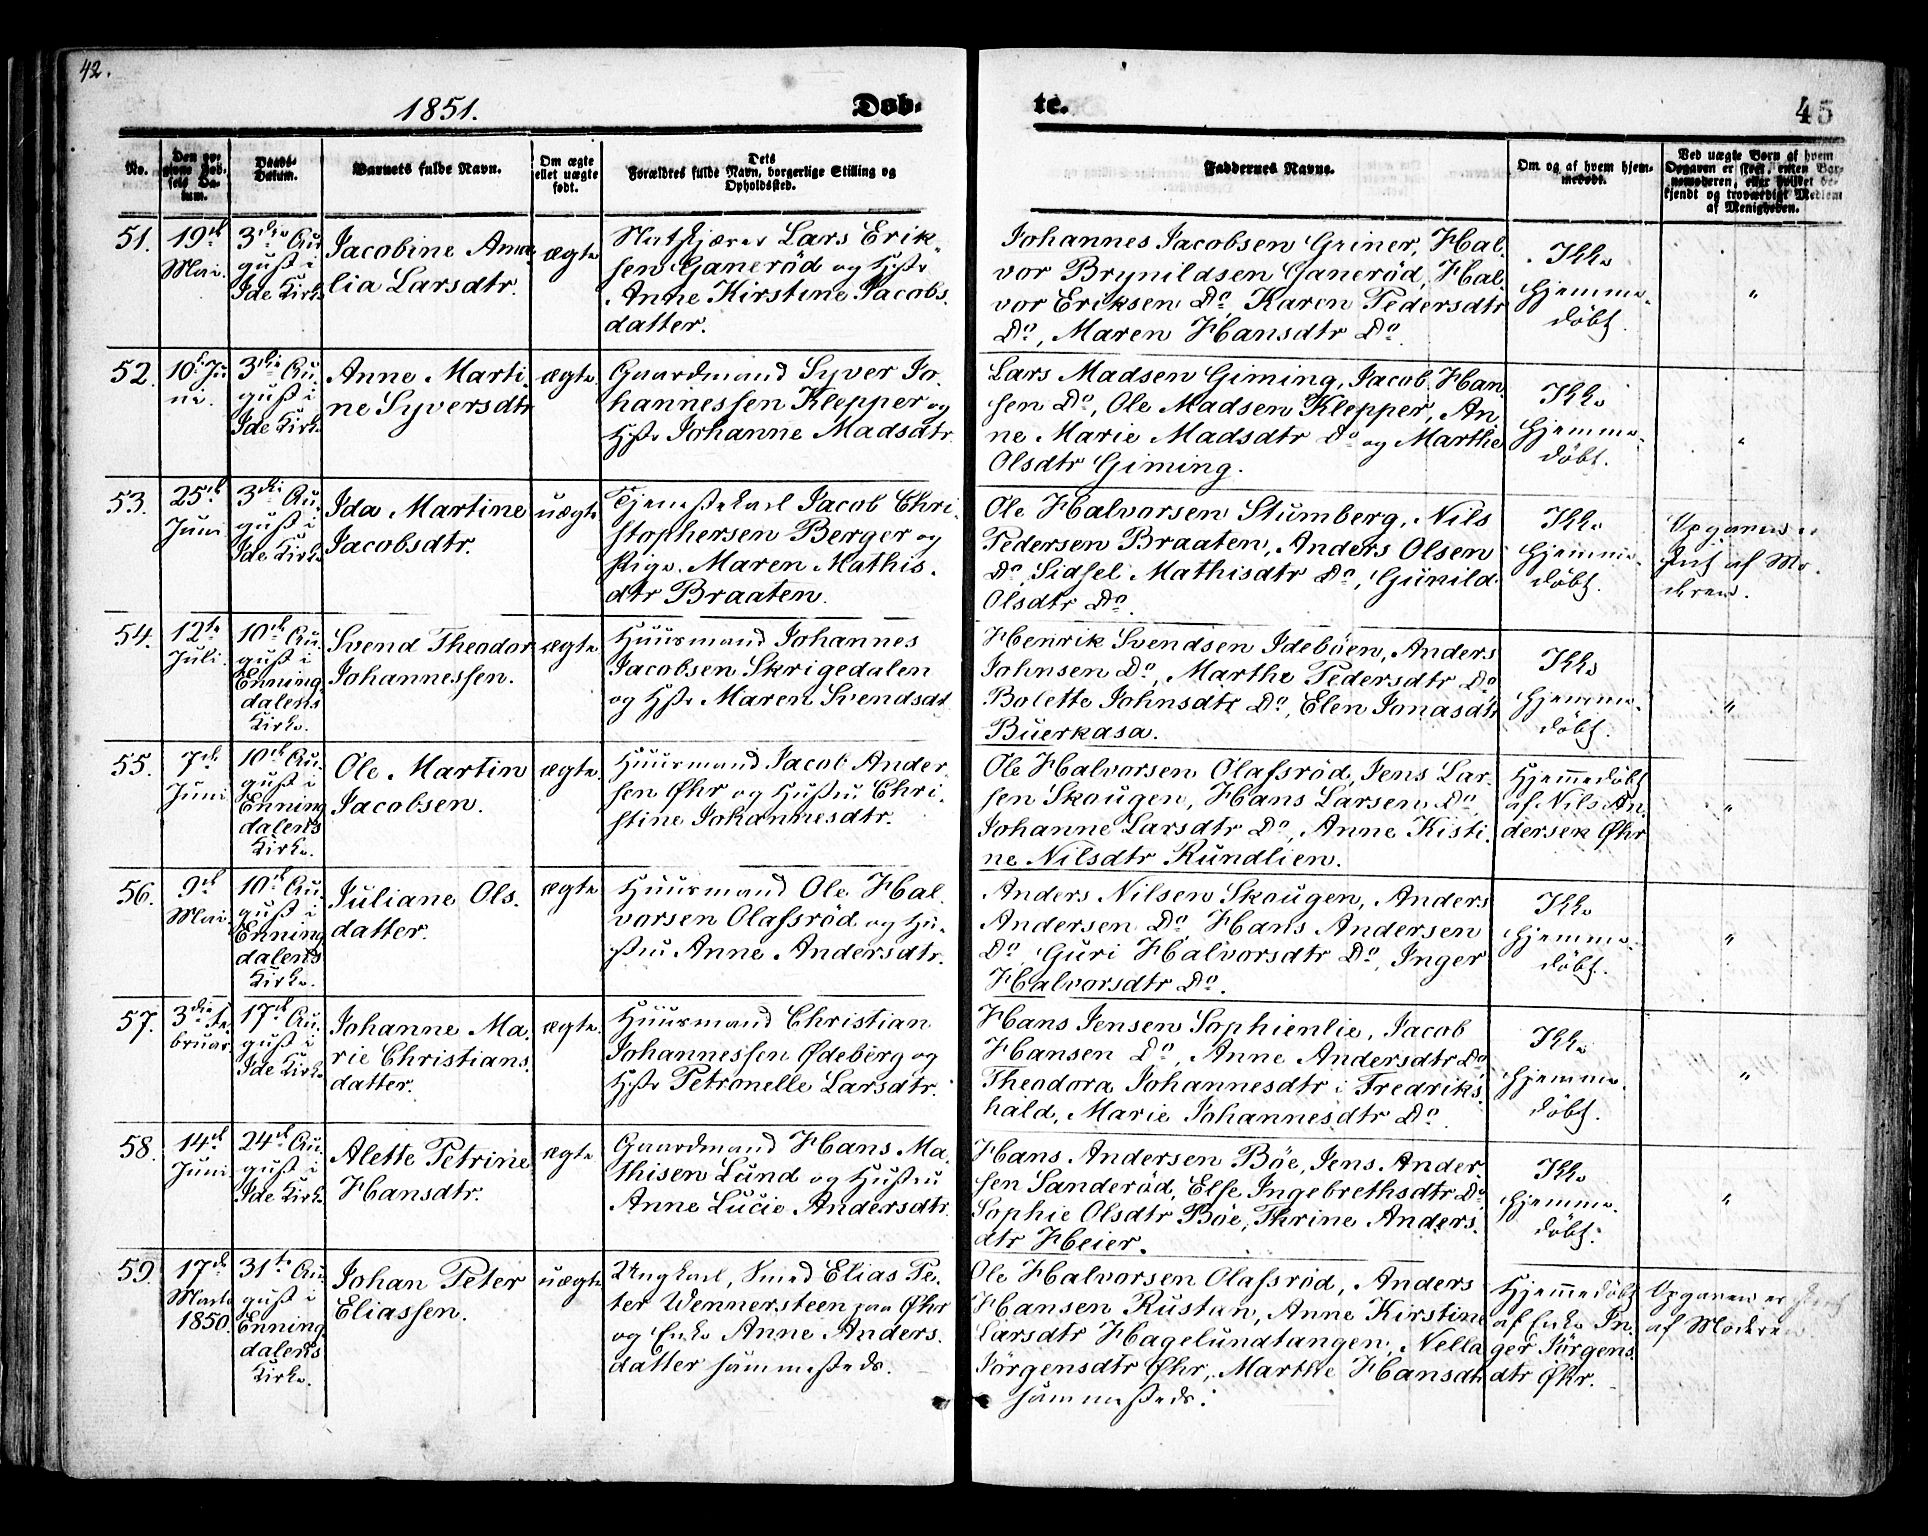 42.
1851.
Døb-
te.
45
No.
Den op-
givne Fød-
sels Da-
tum.
Daabs-
Datum.
Barnets fulde Navn.
Om ægte
ellet uægte
født.
Dets
Forældres fulde Navn, borgerlige Stilling og
Opholdssted.
Faddernes Navne.
Om og af hvem hjem-
medøbt.
Ved uægte Born af hvem
Opgaven er skeet, enten Bar-
nemoderen, eller hvilket be-
kjendt og troværdigt Medlem
af Menigheden.
51.
19de
Mai.
3die Au-
gust i
Ide Kirke
Jacobine Ama-
lia Larsdtr.
ægte
Lars Erik-
sen Ganerød og Hstr.
Anne Kirstine Jacobs.
datter.
Johannes Jacobsen Griner, Hal-
vor Brynildsen Ganerød, Hal-
vor Eriksen Do, Karen Pedersdtr
Do, Maren Hansdtr Do.
Ikke
hjemme-
døbt.
"
52.
10de Ju-
ni.
3die Au-
gust i
Ide Kirke
Anne Marti-
ne Syversdtr
ægte.
Gaardmand Syver Jo-
hannessen Klepper og
Hstr Johanne Madsdtr.
Lars Madsen Giming, Jacob Han-
sen Do, Ole Madsen Klepper, An-
ne Marie Madsdtr Do og Marthe
Olsdtr Giming.
Ikke
hjemme-
døbt.
"
53.
25de
Juni
3die Au-
gust i
Ide Kirke
Ida Martine
Jacobsdtr.
uægte
Tjenestekarl Jacob Chri-
stophersen Berger og
Pige. Maren Mathis.
dtr Braaten.
Ole Halvorsen Stumberg, Nils
Pedersen Braaten, Anders Olsen
Do, Sidsel Mathisdtr Do, Gunild
Olsdtr Do.
Ikke
hjemme-
døbt.
Opgaven er
skeet af Mo-
deren.
54.
12te
Juli.
10de Au-
gust i
Enning-
dalens
Kirke.
Svend Theodor
Johannessen.
ægte.
Huusmand Johannes
Jacobsen Skrigedalen
og Hstr Maren Svendsdt
Henrik Svendsen Idebøen, Anders
Johnsen Do, Marthe Pedersdtr Do
Bolette Johnsdtr Do, Elen Jonasdtr
Buerkasa.
Ikke
hjemme-
døbt.
"
55.
7de
Juni
10de Au-
gust i
Enning-
dalens
Kirke.
Ole Martin
Jacobsen.
ægte.
Huusmand Jacob Ander-
sen Øhr og Hustru Chri-
stine Johannesdtr.
Ole Halvorsen Olafsrød, Jens Lar-
sen Skaugen, Hans Larsen Do
Johanne Larsdtr Do, Anne Kisti-
ne Nilsdtr Rundlien.
Hjemmedøbt
af Nils An-
dersen Øhr
"
56.
9de
Mai
10de Au-
gust i
Enning-
dalens
Kirke.
Juliane Ols.
datter.
ægte
Huusmand Ole Hal-
vorsen Olafsrød og Hu-
stru Anne Andersdtr.
Anders Nilsen Skaugen, Anders
Andersen Do, Hans Andersen
Do, Guri Halvorsdtr Do, Inger
Halvorsdtr Do.
Ikke
hjemme-
døbt.
"
57.
3die Fe-
bruar.
17de Au-
gust i
Ide Kirke
Johanne Ma-
rie Christians.
datter.
ægte.
Huusmand Christian
Johannessen Ødeberg og
Hstr Petronelle Larsdtr.
Hans Jensen Sophienlie, Jacob
Hansen Do, Anne Andersdtr Do
Theodora Johannesdtr i Fredriks-
hald, Marie Johannesdtr Do.
Ikke
hjemme-
døbt.
"
58.
14de
Juni
24de Au-
gust i
Ide Kirke
Alette Petrine
Hansdtr.
ægte
Gaardmand Hans Ma-
thisen Lund og Hustru
Anne Lucie Andersdtr.
Hans Andersen Bøe, Jens Ander-
sen Sanderød, Else Ingebrethsdtr Do
Sophie Olsdtr Bøe, Thrine Anders.
dtr Heier.
Ikke
hjemme-
døbt.
"
59.
17de
Marts
1850.
31te Au-
gust i
Enning-
dalens
Kirke.
Johan Peter
Eliassen.
uægte
Ungkarl, Smed Elias Pe-
ter Wennersteen paa Øhr
og Enke Anne Anders.
datter sammesteds.
Ole Halvorsen Olafsrød, Anders
Hansen Rustan, Anne Kirstine
Larsdtr Hagelundtangen, Nella
Jørgensdtr Øhr, Marthe Hansdtr
sammesteds.
Hjemmedøbt
af Enke In-
ger Jørgens.
dtr Øhr.
Opgaven er skeet
af Moderen.